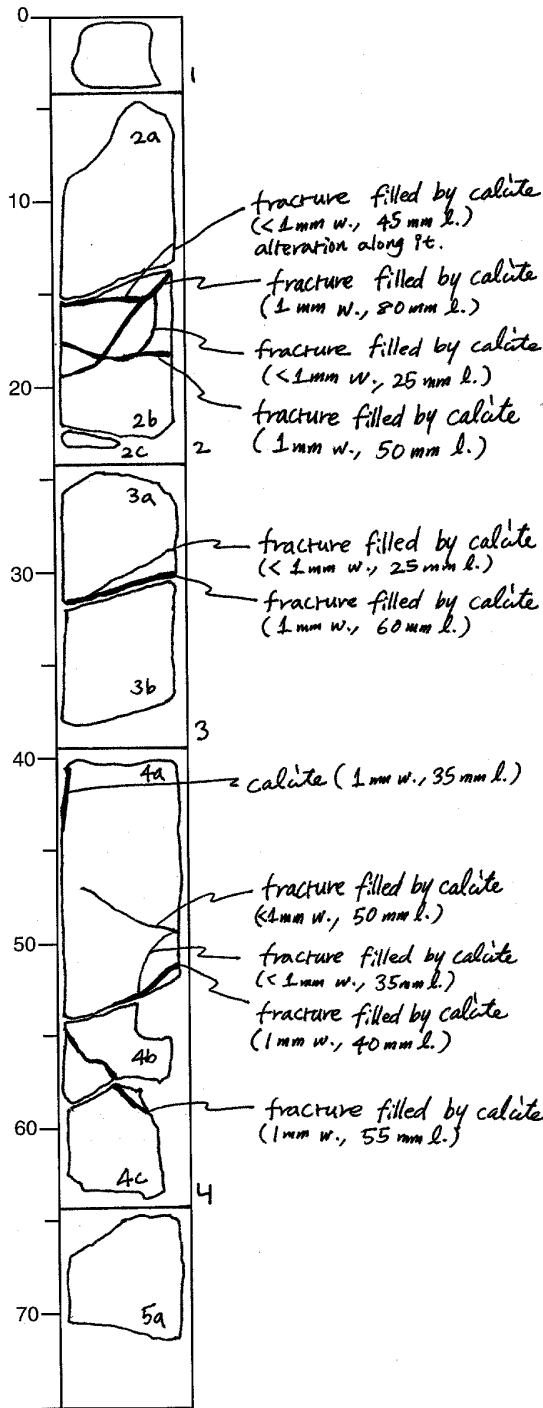 0
1
2a
10
fracture filled by calcite
(<1mm w., 45mm l.)
alteration along it.
fracture filled by calcite
(1mm w., 80mm l.)
fracture filled by calcite
(<1mm w., 25mm l.)
20
2b
fracture filled by calcite
(1mm w., 50mm l.)
2c
2
3a
fracture filled by calcite
(<1mm w., 25mm l.)
30
fracture filled by calcite
(1mm w., 60mm l.)
3b
3
40
4a
calcite (1mm w., 35mm l.)
fracture filled by calcite
(<1mm w., 50mm l.)
50
fracture filled by calcite
(<1mm w., 35mm l.)
fracture filled by calcite
(1mm w., 40mm l.)
4b
60
fracture filled by calcite
(1mm w., 55mm l.)
4c
4
70
5a